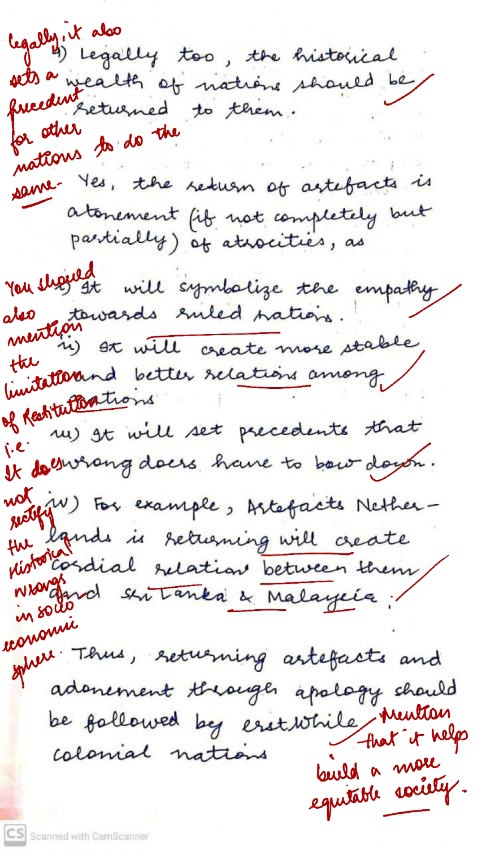 legally, it also
sets a
precedent
for other
nations to do the
same-
4) Legally too, the historical
wealth of nations should be
returned to them.
Yes, the return of artefacts is
atonement (if not completely but
partially) of atrocities, as
i) It will symbolize the empathy
towards ruled nation.
ii) It will create more stable
and better relations among
nations
iii) It will set precedents that
wrong doers have to bow down.
iv) For example, Artefacts Nether-
lands is returning will create
cordial relation between them
and Sri Lanka & Malayeia.
You should
also
mention
the
limitation
of Restitution
i.e.
It does
not
rectify
the
Historical
wrongs
in socio
economic
sphere.
Thus, returning artefacts and
adonement through apology should
be followed by erstwhile
colonial nations
Mention
that it helps
build a more
equitable society.
CS Scanned with CamScanner